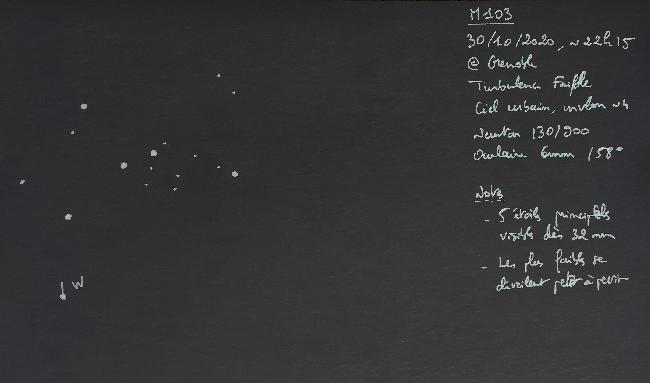 M103
30/10/2020, ~ 22h15
@ Grenoble
Turbulence Faible
Ciel urbain, environ
Newton 130/900
Oculaire 6mm /58°
Notes
- 5 étoiles principales
visibles dès 32 mm
- Les plus faibles se
dévoilent petit à petit
W